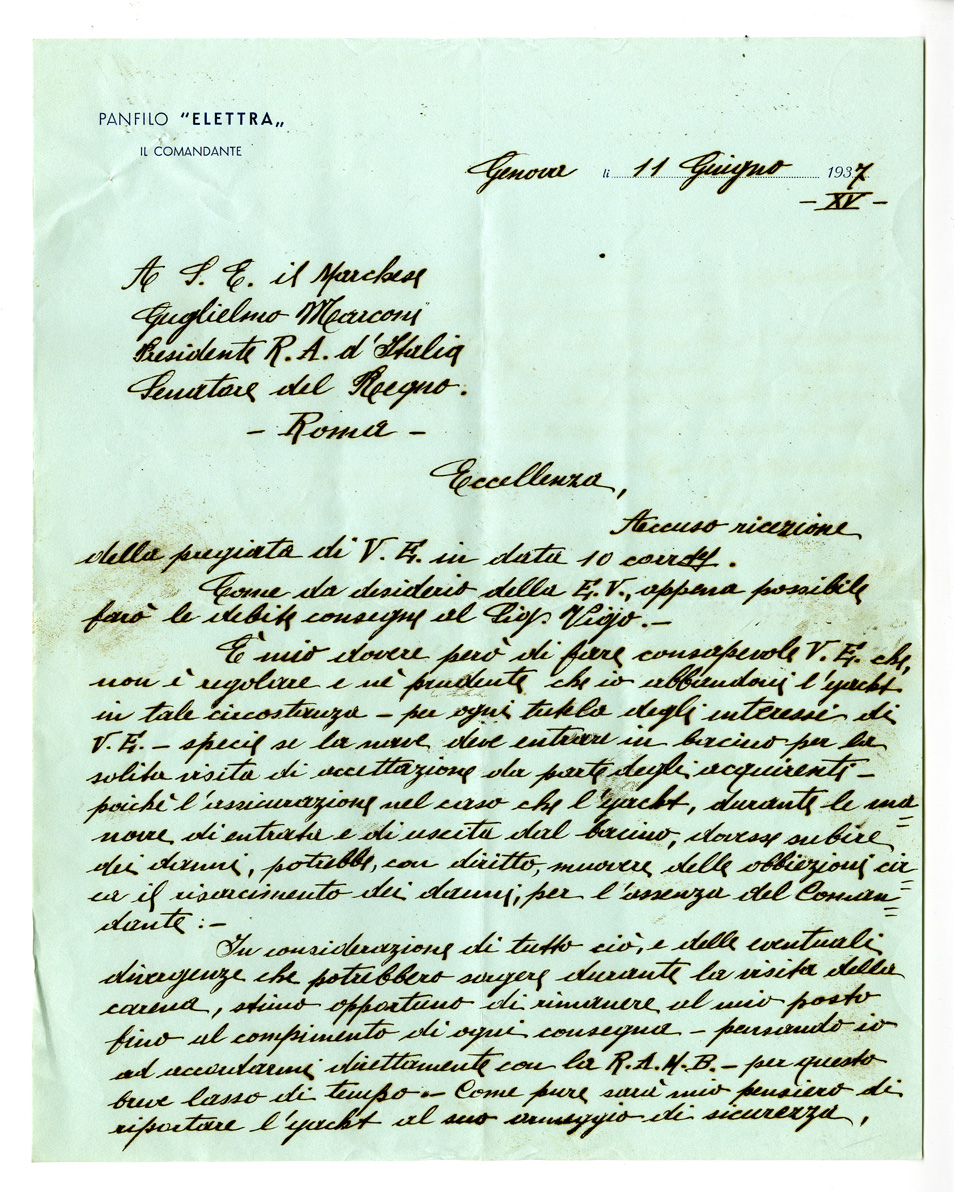 PANFILO "ELETTRA„
IL COMANDANTE
Genova li 11 Giugno 1937
- XV -
A S. E. il Marchese
Guglielmo Marconi
Presidente R. A. d'Italia
Senatore del Regno.
- Roma -
Eccellenza,
Accuso ricezione
della pregiata di V. E. in data 10 corr.
Come da desiderio della E. V., appena possibile
farò le debite consegne al Sig. Vigo.-
È mio dovere però di fare consapevole V. E. che,
non è regolare e nè prudente che io abbandoni l'yacht
in tale circostanza - per ogni tutela degli interessi di
V. E. - specie se la nave deve entrare in bacino per la
solita visita di accettazione da parte degli acquirenti -
poichè l'assicurazione nel caso che l'yacht, durante le ma=
novre di entrata e di uscita dal bacino, dovesse subire
dei danni, potrebbe, con diritto, muovere delle obbiezioni cir=
ca il risarcimento dei danni, per l'assenza del Coman=
dante:-
In considerazione di tutto ciò, e delle eventuali
divergenze che potrebbero sorgere durante la visita della
carena, stimo opportuno di rimanere al mio posto
fino al compimento di ogni consegna - pensando io
ad accordarmi direttamente con la R.A.M.B. - per questo
breve lasso di tempo.- Come pure sarà mio pensiero di
riportare l'yacht al suo ormeggio di sicurezza,